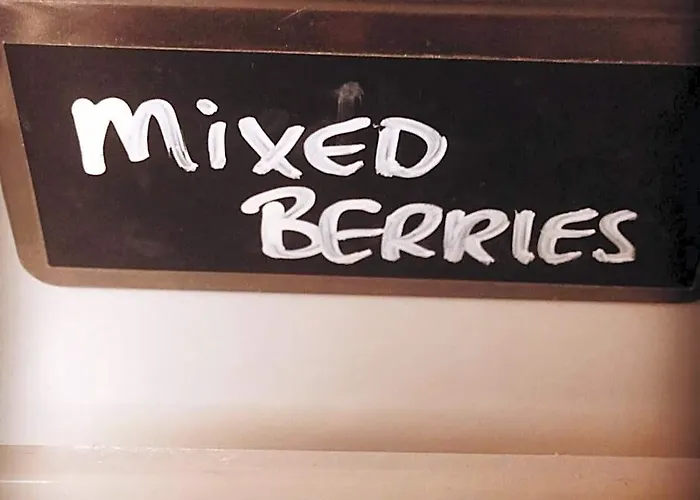 MiXED
BERRIES